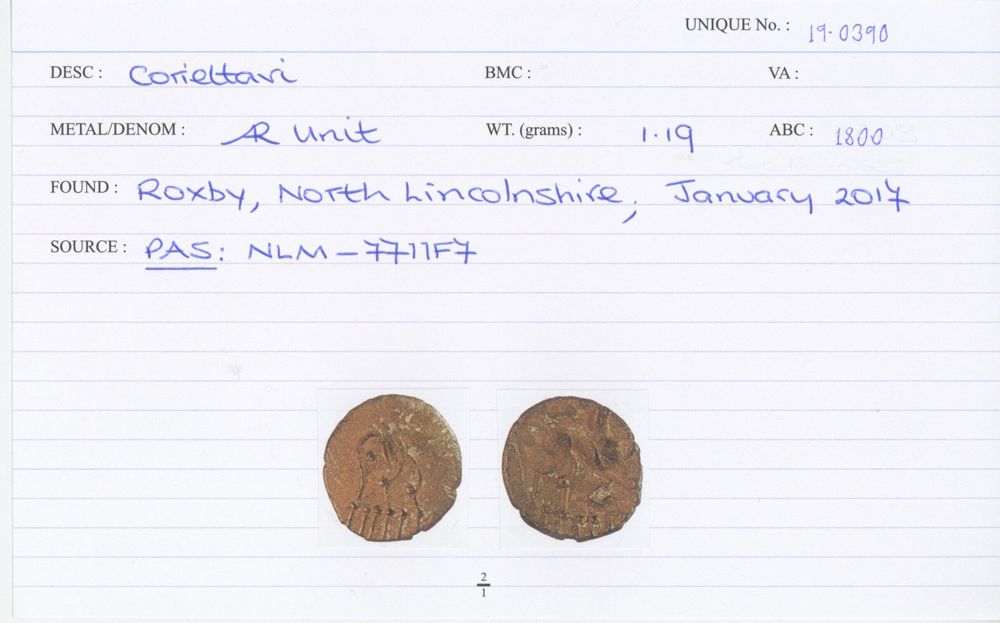 UNIQUE No. : 19.0390
DESC : Corieltavi BMC : VA :
METAL/DENOM : AR Unit WT. (grams) : 1.19 ABC : 1800
FOUND : Roxby, North Lincolnshire, January 2017
SOURCE : PAS: NLM-7711F7
2
1